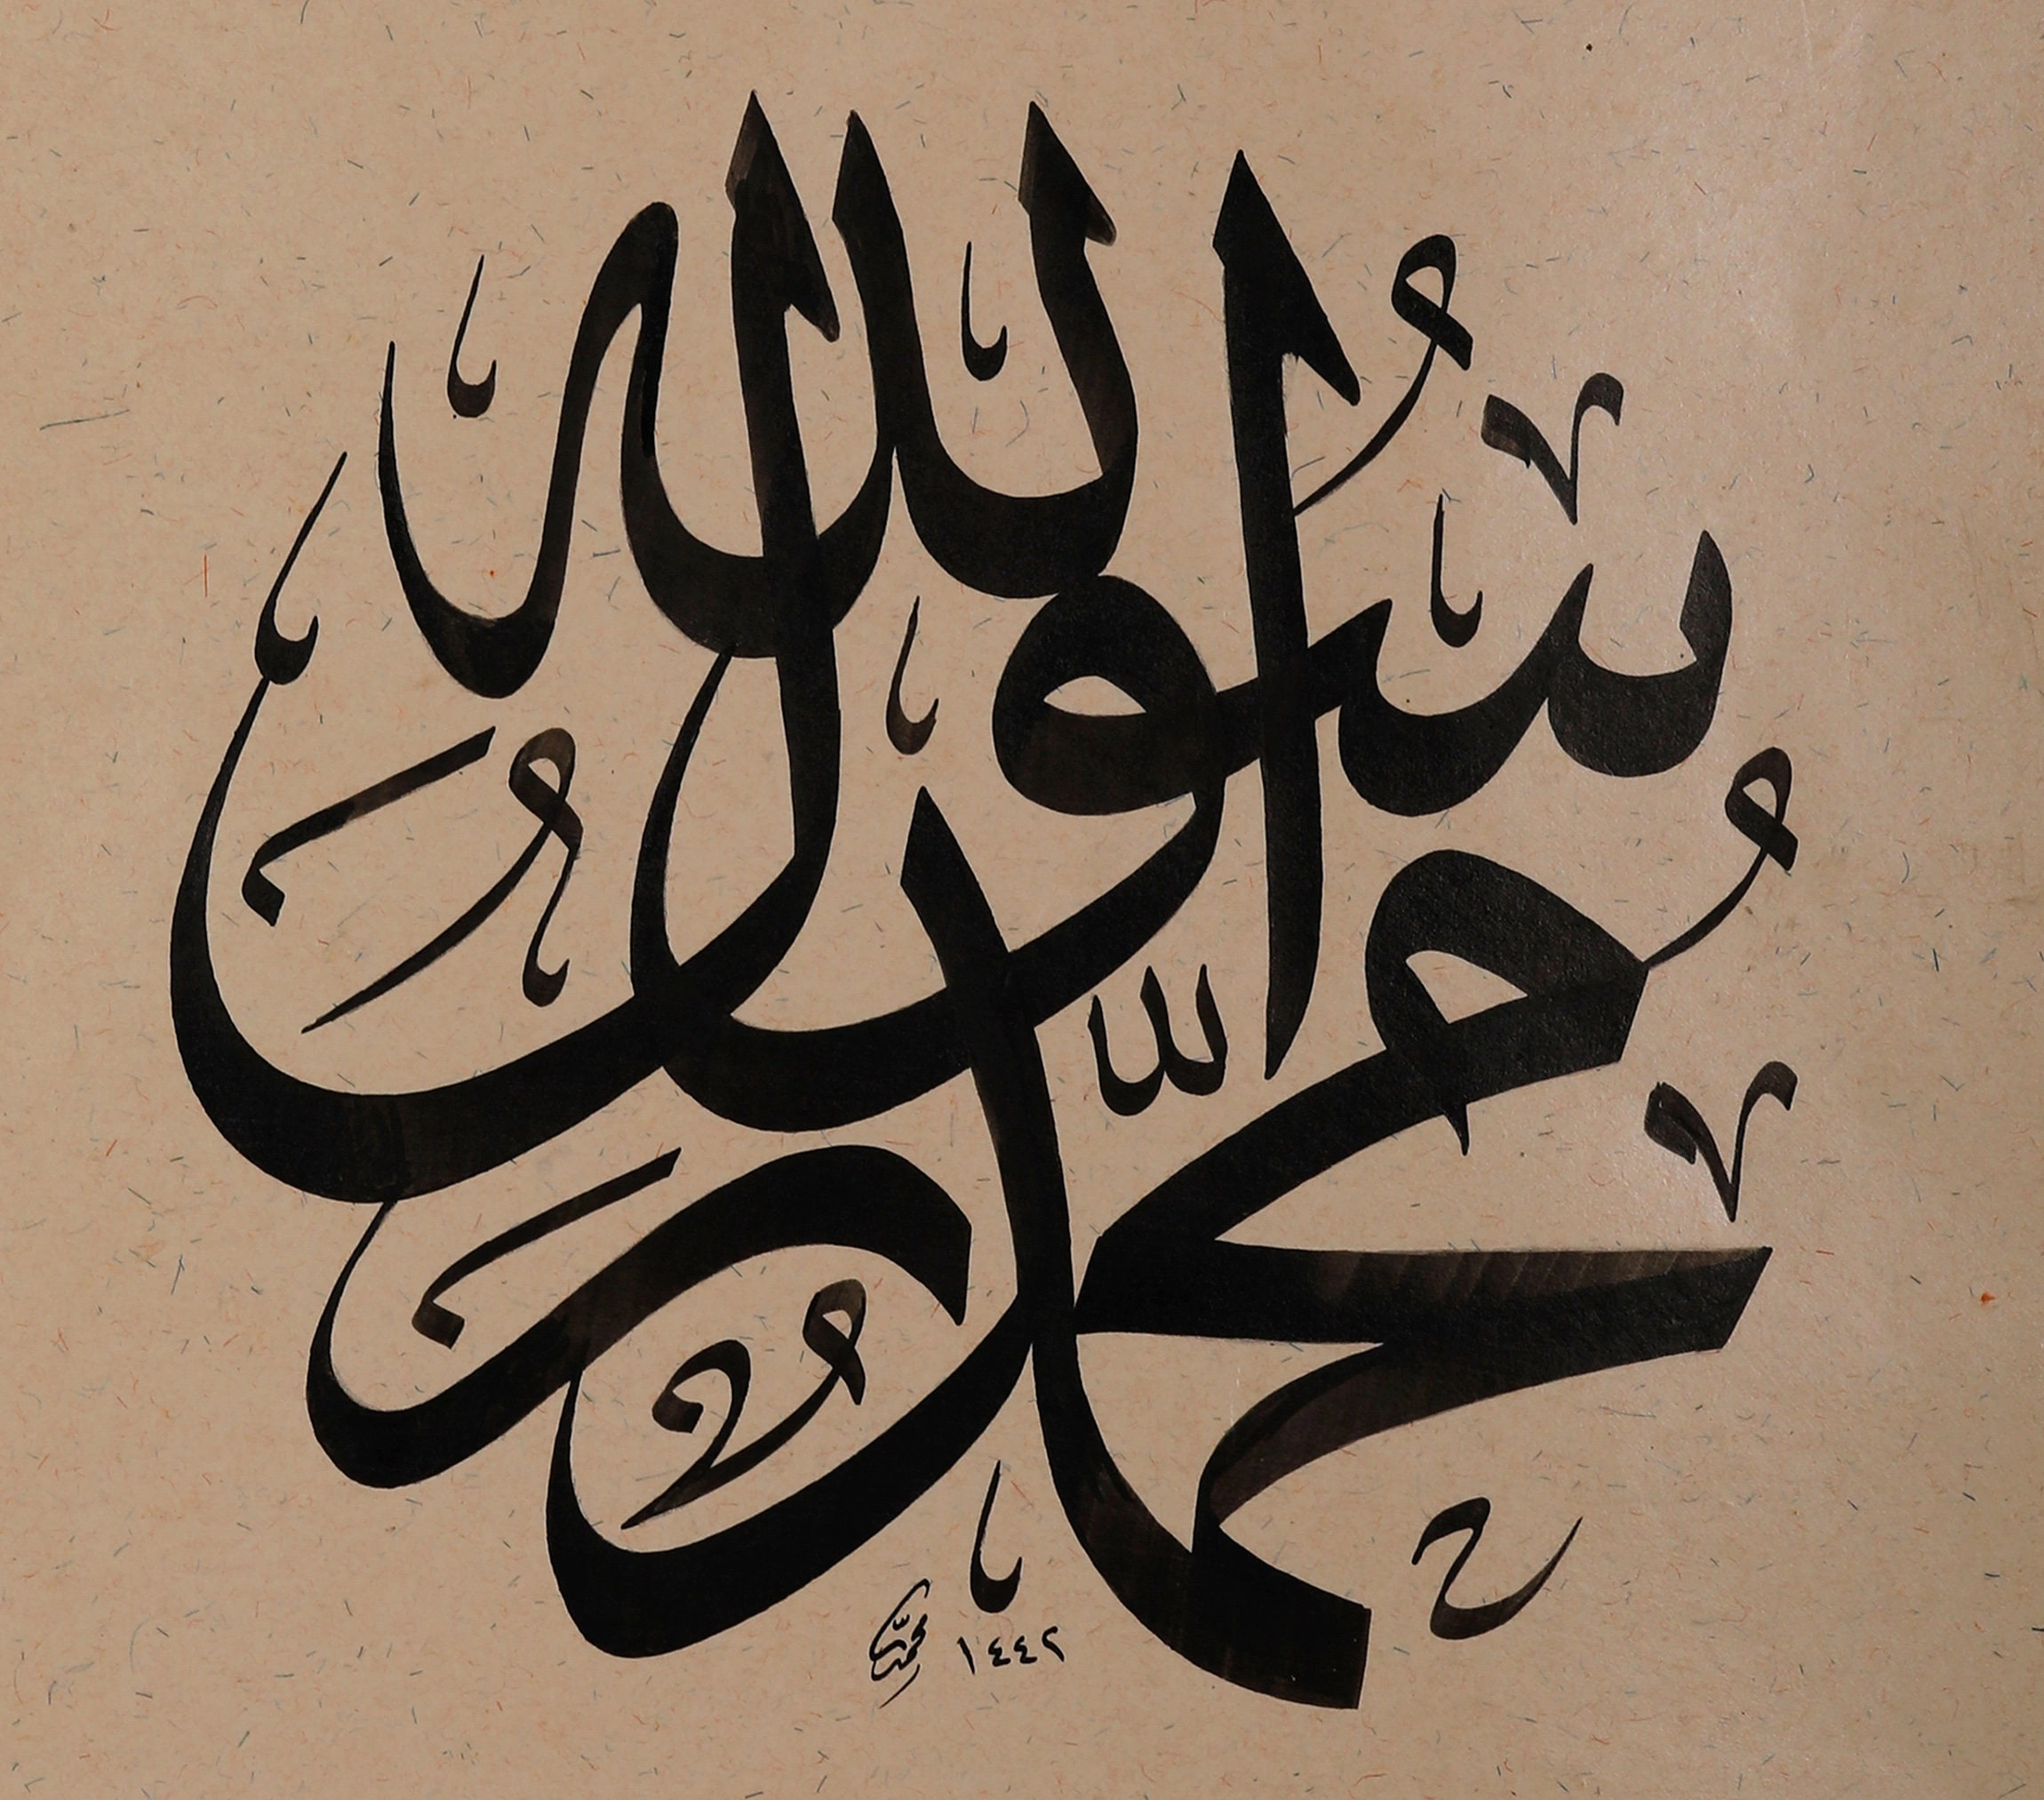 محمد رسول الله
محمد ١٤٤٢